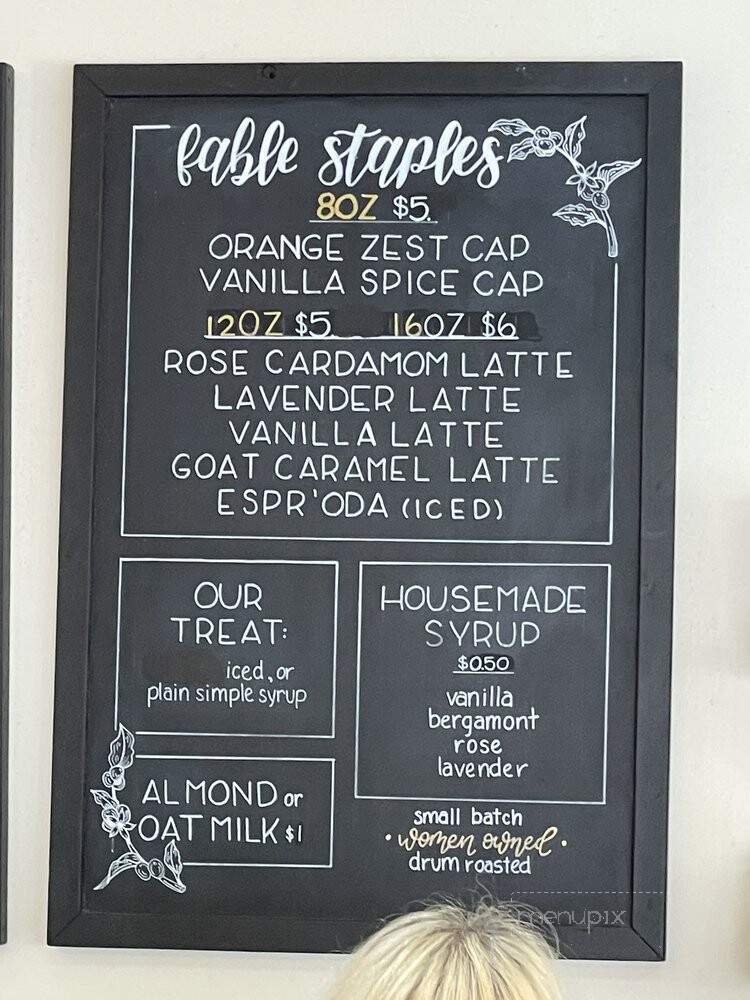 fable staples
8OZ $5
ORANGE ZEST CAP
VANILLA SPICE CAP
12OZ $5 16OZ $6
ROSE CARDAMOM LATTE
LAVENDER LATTE
VANILLA LATTE
GOAT CARAMEL LATTE
ESPR'ODA (ICED)
OUR
TREAT:
iced, or
plain simple syrup
ALMOND or
OAT MILK $1
HOUSEMADE
SYRUP
$0.50
vanilla
bergamont
rose
lavender
small batch
• women owned •
drum roasted
menupix